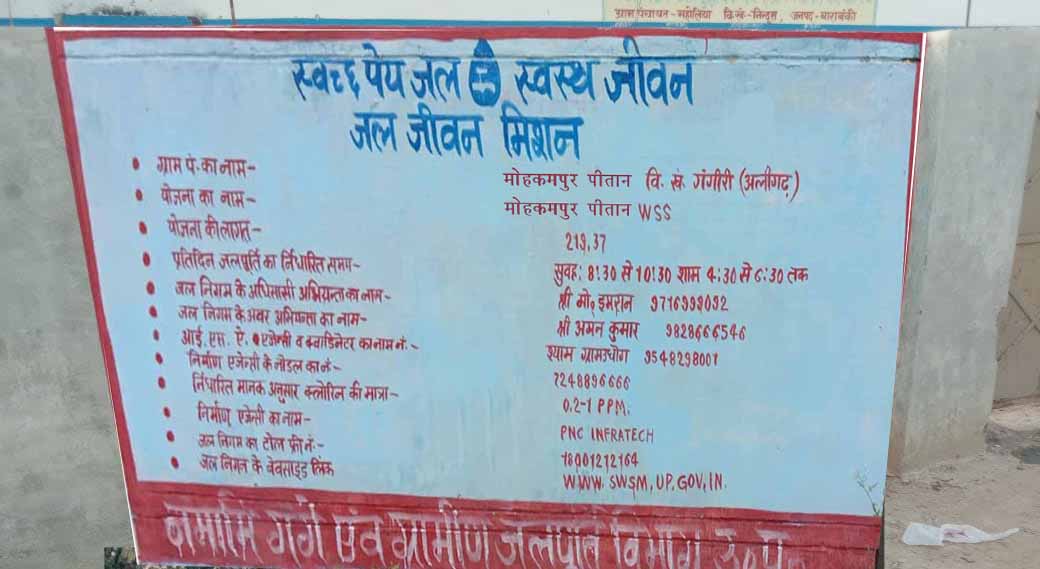 ग्राम पंचायत-महोलिया वि.खं.-निन्दूरा, जनपद-बाराबंकी
स्वच्छ पेय जल स्वस्थ जीवन
जल जीवन मिशन
ग्राम पं. का नाम- मोहकमपुर पीतान वि. खं. गंगीरी (अलीगढ़)
योजना का नाम- मोहकमपुर पीतान WSS
योजना की लागत- 219,37
प्रतिदिन जलपूर्ति का निर्धारित समय- सुवह: 8:30 से 10:30 शाम 4:30 से 6:30 तक
जल निगम के अधिसासी अभियन्ता का नाम- श्री मो0 इमरान 9716993092
जल निगम के अवर अभियन्ता का नाम- श्री अमन कुमार 9828666546
आई. एस. ऐ. एजेन्सी व क्वाडिनेटर का नाम नं.- श्याम ग्रामउधोग 9548298001
निर्माण एजेन्सी के नोडल का नं- 7248896666
निर्धारित मानक अनुसार क्लोरिन की मात्रा- 0.2-1 PPM.
निर्माण एजेन्सी का नाम- PNC INFRATECH
जल निगम का टोल फ्री नं- 18001212164
जल निगम के वेबसाइड लिंक WWW. SWSM, UP. GOV, IN.
नमामि गंगे एवं ग्रामीण जलपूर्ति विभाग उ०प्र०